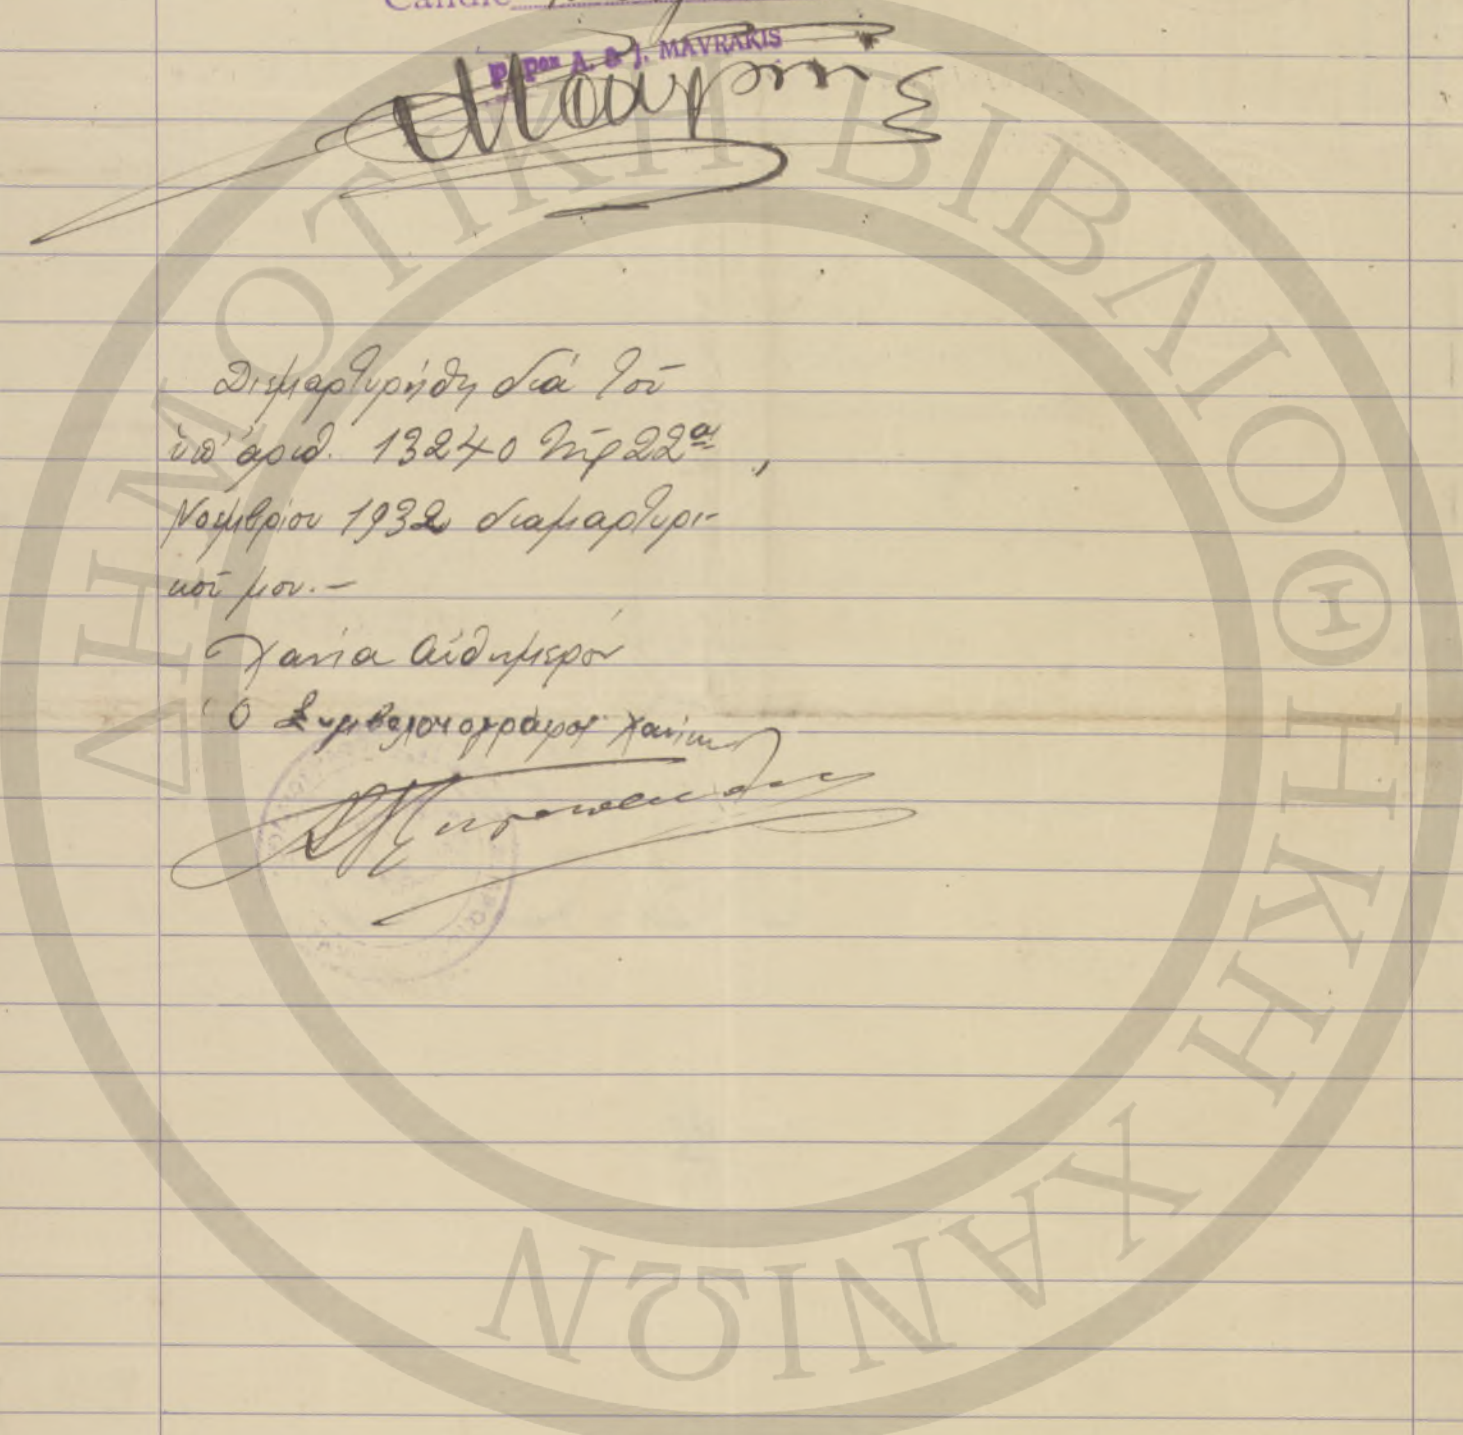 Candie
P. pon A. & J. MAVRAKIS
Διεμαρτυρήθη διά τοῦ
ὑπ' ἀριθ. 13240 τῆς 22ας
Νοεμβρίου 1932 διαμαρτυρι-
κοῦ μου.-
Χανία αὐθημερόν
Ὁ Συμβολαιογράφος Χανίων
ΔΗΜΟΤΙΚΗ ΒΙΒΛΙΟΘΗΚΗ ΧΑΝΙΩΝ